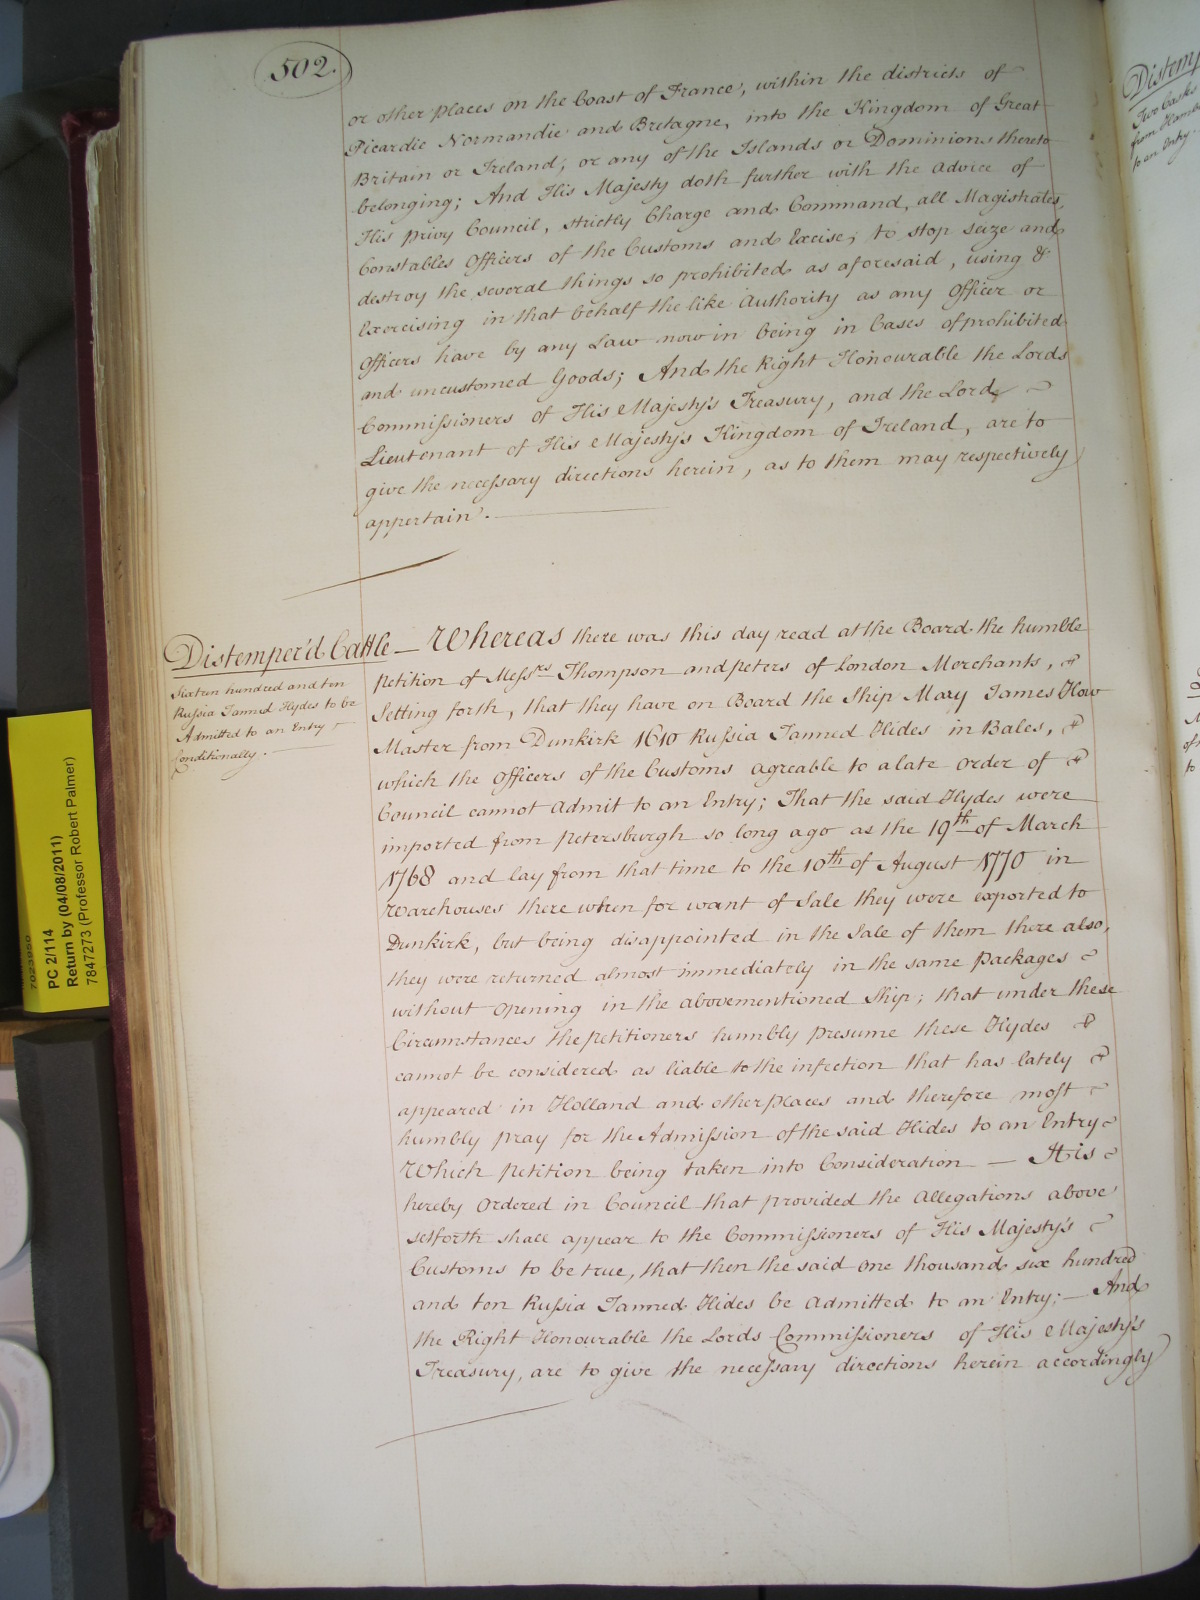 502.
or other places on the Coast of France, within the districts of
Picardie Normandie and Bretagne, into the Kingdom of Great
Britain or Ireland, or any of the Islands or Dominions thereto
belonging; And His Majesty doth further with the advice of
His privy Council, strictly Charge and Command, all Magistrates,
Constables Officers of the Customs and Excise; to stop seize and
destroy the several things so prohibited as aforesaid, using &
Exercising in that behalf the like Authority as any Officer or
Officers have by any Law now in being in Cases of prohibited
and uncustomed Goods; And the Right Honourable the Lords
Commissioners of His Majesty's Treasury, and the Lord
Lieutenant of His Majesty's Kingdom of Ireland, are to
give the necessary directions herein, as to them may respectively
appertain.
Distemper'd Cattle — Whereas there was this day read at the Board the humble
Sixteen hundred and ten
Russia Tanned Hydes to be
Admitted to an Entry
Conditionally.
petition of Messrs Thompson and peters of London Merchants,
Setting forth, that they have on Board the Ship Mary James How
Master from Dunkirk 1610 Russia Tanned Hides in Bales,
which the Officers of the Customs agreable to a late order of
Council cannot admit to an Entry; That the said Hydes were
imported from petersburgh so long ago as the 19th of March
1768 and lay from that time to the 10th of August 1770 in
Warehouses there when for want of Sale they were exported to
Dunkirk, but being disappointed in the Sale of them there also,
they were returned almost immediately in the same packages
without opening in the abovementioned Ship; that under these
Circumstances the petitioners humbly presume these Hydes
cannot be considered as liable to the infection that has lately
appeared in Holland and other places and therefore most
humbly pray for the Admission of the said Hides to an Entry
Which petition being taken into Consideration — It is
hereby Ordered in Council that provided the allegations above
setforth shall appear to the Commissioners of His Majesty's
Customs to be true, that then the said one thousand six hundred
and ten Russia Tanned Hides be admitted to an Entry; — And
the Right Honourable the Lords Commissioners of His Majesty's
Treasury, are to give the necessary directions herein accordingly
PC 2/114
Return by (04/08/2011)
7847273 (Professor Robert Palmer)
Distemp
Two Casks
to an Entry